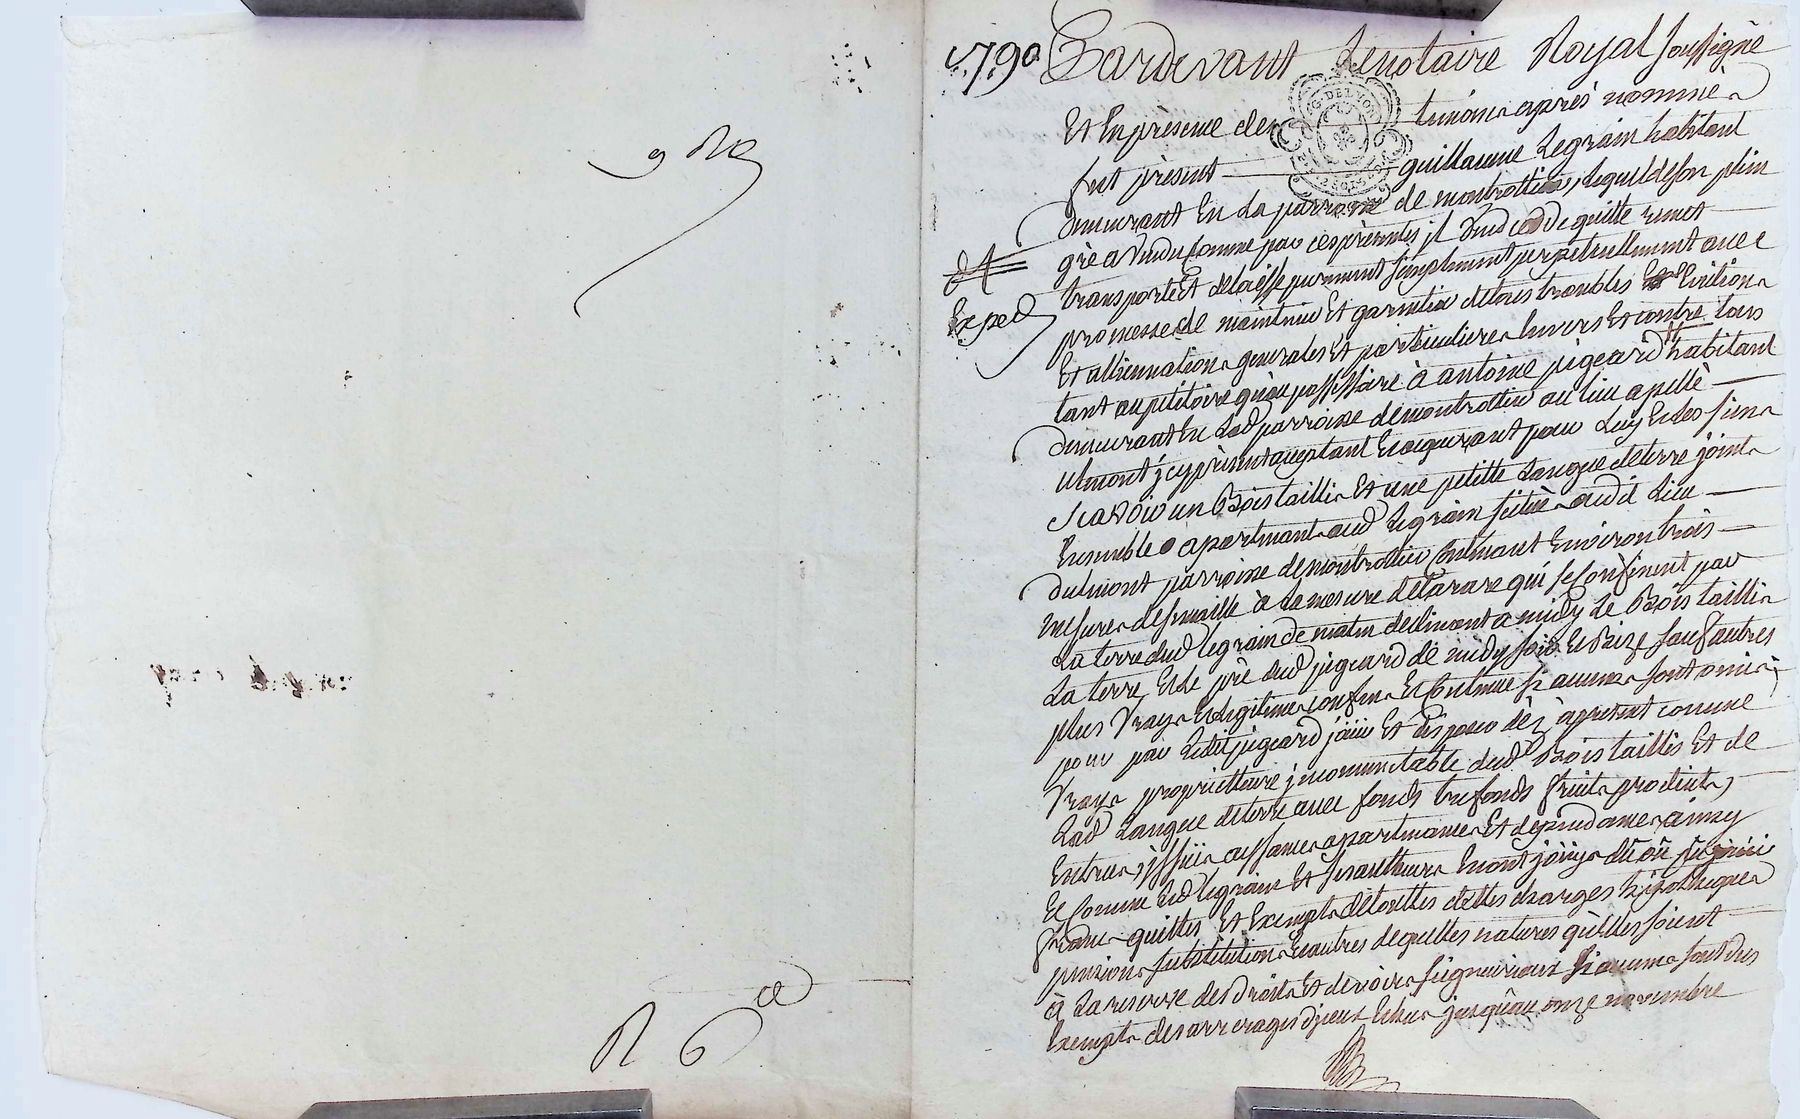 1790 Pardevant Lenotaire Royal soussigné
Et En présence des témoins après nommés
fut présent guillaume Legrain habitant
demeurant En La parroisse de montrottier, Lequel de son plein
gré a vendu comme par ces présentes il vend cede quitte remet
transporte Et delaisse purement simplement perpetuellement avec
Exped
promesse de maintenir Et garentir de tous troubles Evictions
Et alliennations generales Et particulieres Envers Et contre tous
tant au petitoire qu'au possessoire à antoine pigeard habitant
demeurant En Lad parroisse de montrottier au lieu apellé
ulmont jcy présent acceptant Et aquerant pour Luy Et Les siens
scavoir un Bois taillis Et une petitte Langue de terre joints
Ensemble apartenants aud Legrain situés audit Lieu
dulmont parroisse de montrottier Contenant Environ trois
mesures à La mesure de tarare qui se Confinent par
La terre dud Legrain de matin a midy Le Bois taillis
La terre Et Le pré dud pigeard de midy soir Et Bize sauf autres
plus vrays Et Legitimes confins Et Contenue si aucuns sont omis
pour par Ledit pigeard jouir Et disposer dès à present comme
vrays propriettaire jncommutable dud Bois taillis Et de
Lad Langue de terre avec fonds trefonds fruits produits,
Entrées, jssües aisances apartenances Et dependances ainsy
Et Comme Led Legrain Et ses autheurs En ont jöüys dû ou pû jouir
francs quittes Et Exempts de touttes dettes charges hipotheques
pensions substitutions Et autres de quelles natures qu'elles soient
à La reserve des droits Et devoirs seigneuriaux si aucuns sont dus
Exempts des arrerages d'jceux Echus jusqu'au onze novembre